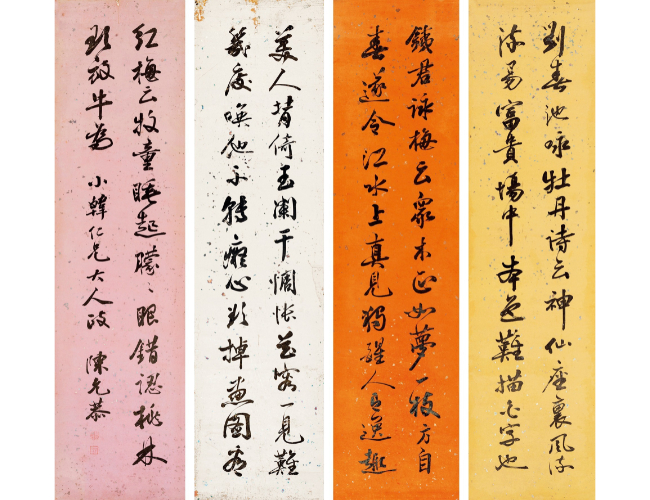 劉春池咏牡丹诗云神仙座裏风流
流易富貴場中本色難描不字也
鐵君詠梅云衆木正如夢一枝方自
春遂令江水上真見獨醒人有逸趣
美人背倚玉闌干惆悵花容一見難
幾度喚他不轉癡心欲掉畫圖看
红梅云牧童睡起朦々眼錯認桃林
欲放牛為 小韓仁兄大人政 陳允恭